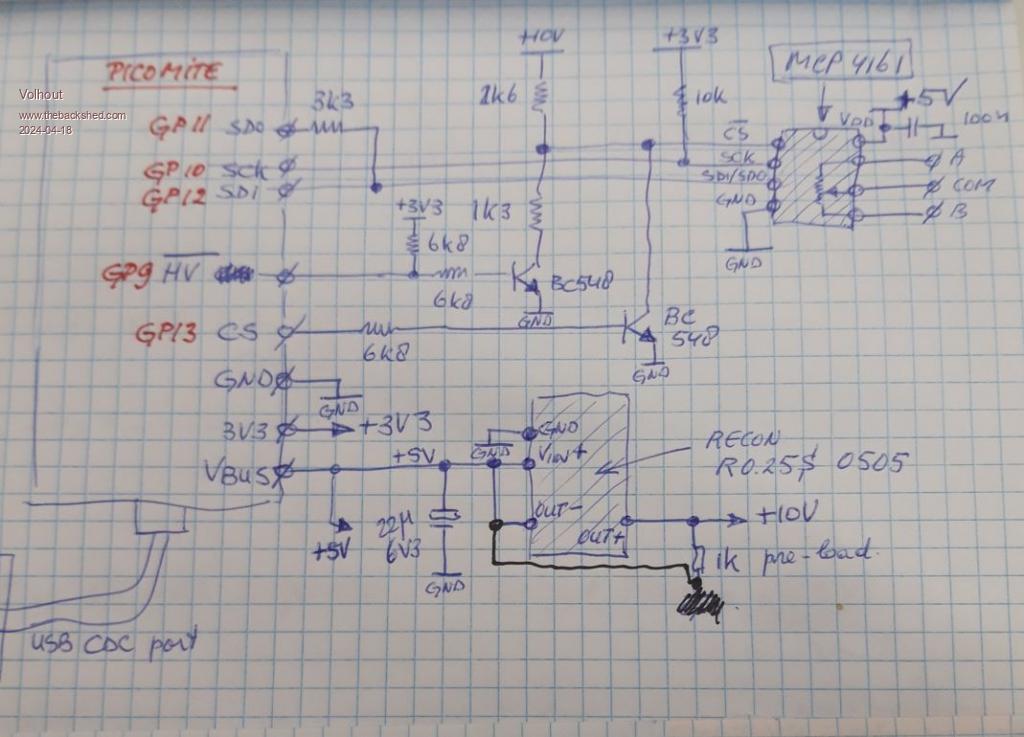 Volhout
www.thebackshed.com
2024-04-18
PICOMITE
GP11 SDO
3k3
GP10 SCK
GP12 SDI
GP9 HV
GP13 CS
6k8
GND
GND
3V3
+3V3
VBUS
+5V
+5V
22µ
6V3
GND
USB CDC port
+3V3
6k8
6k8
+10V
1k6
1k3
BC548
GND
BC
548
GND
+3V3
10k
MCP 4161
CS
SCK
SDI/SDO
GND
GND
VDD
+5V
100n
A
COM
B
GND
GND
VIN+
OUT-
OUT+
RECON
R0.25S 0505
+10V
1k pre-load.